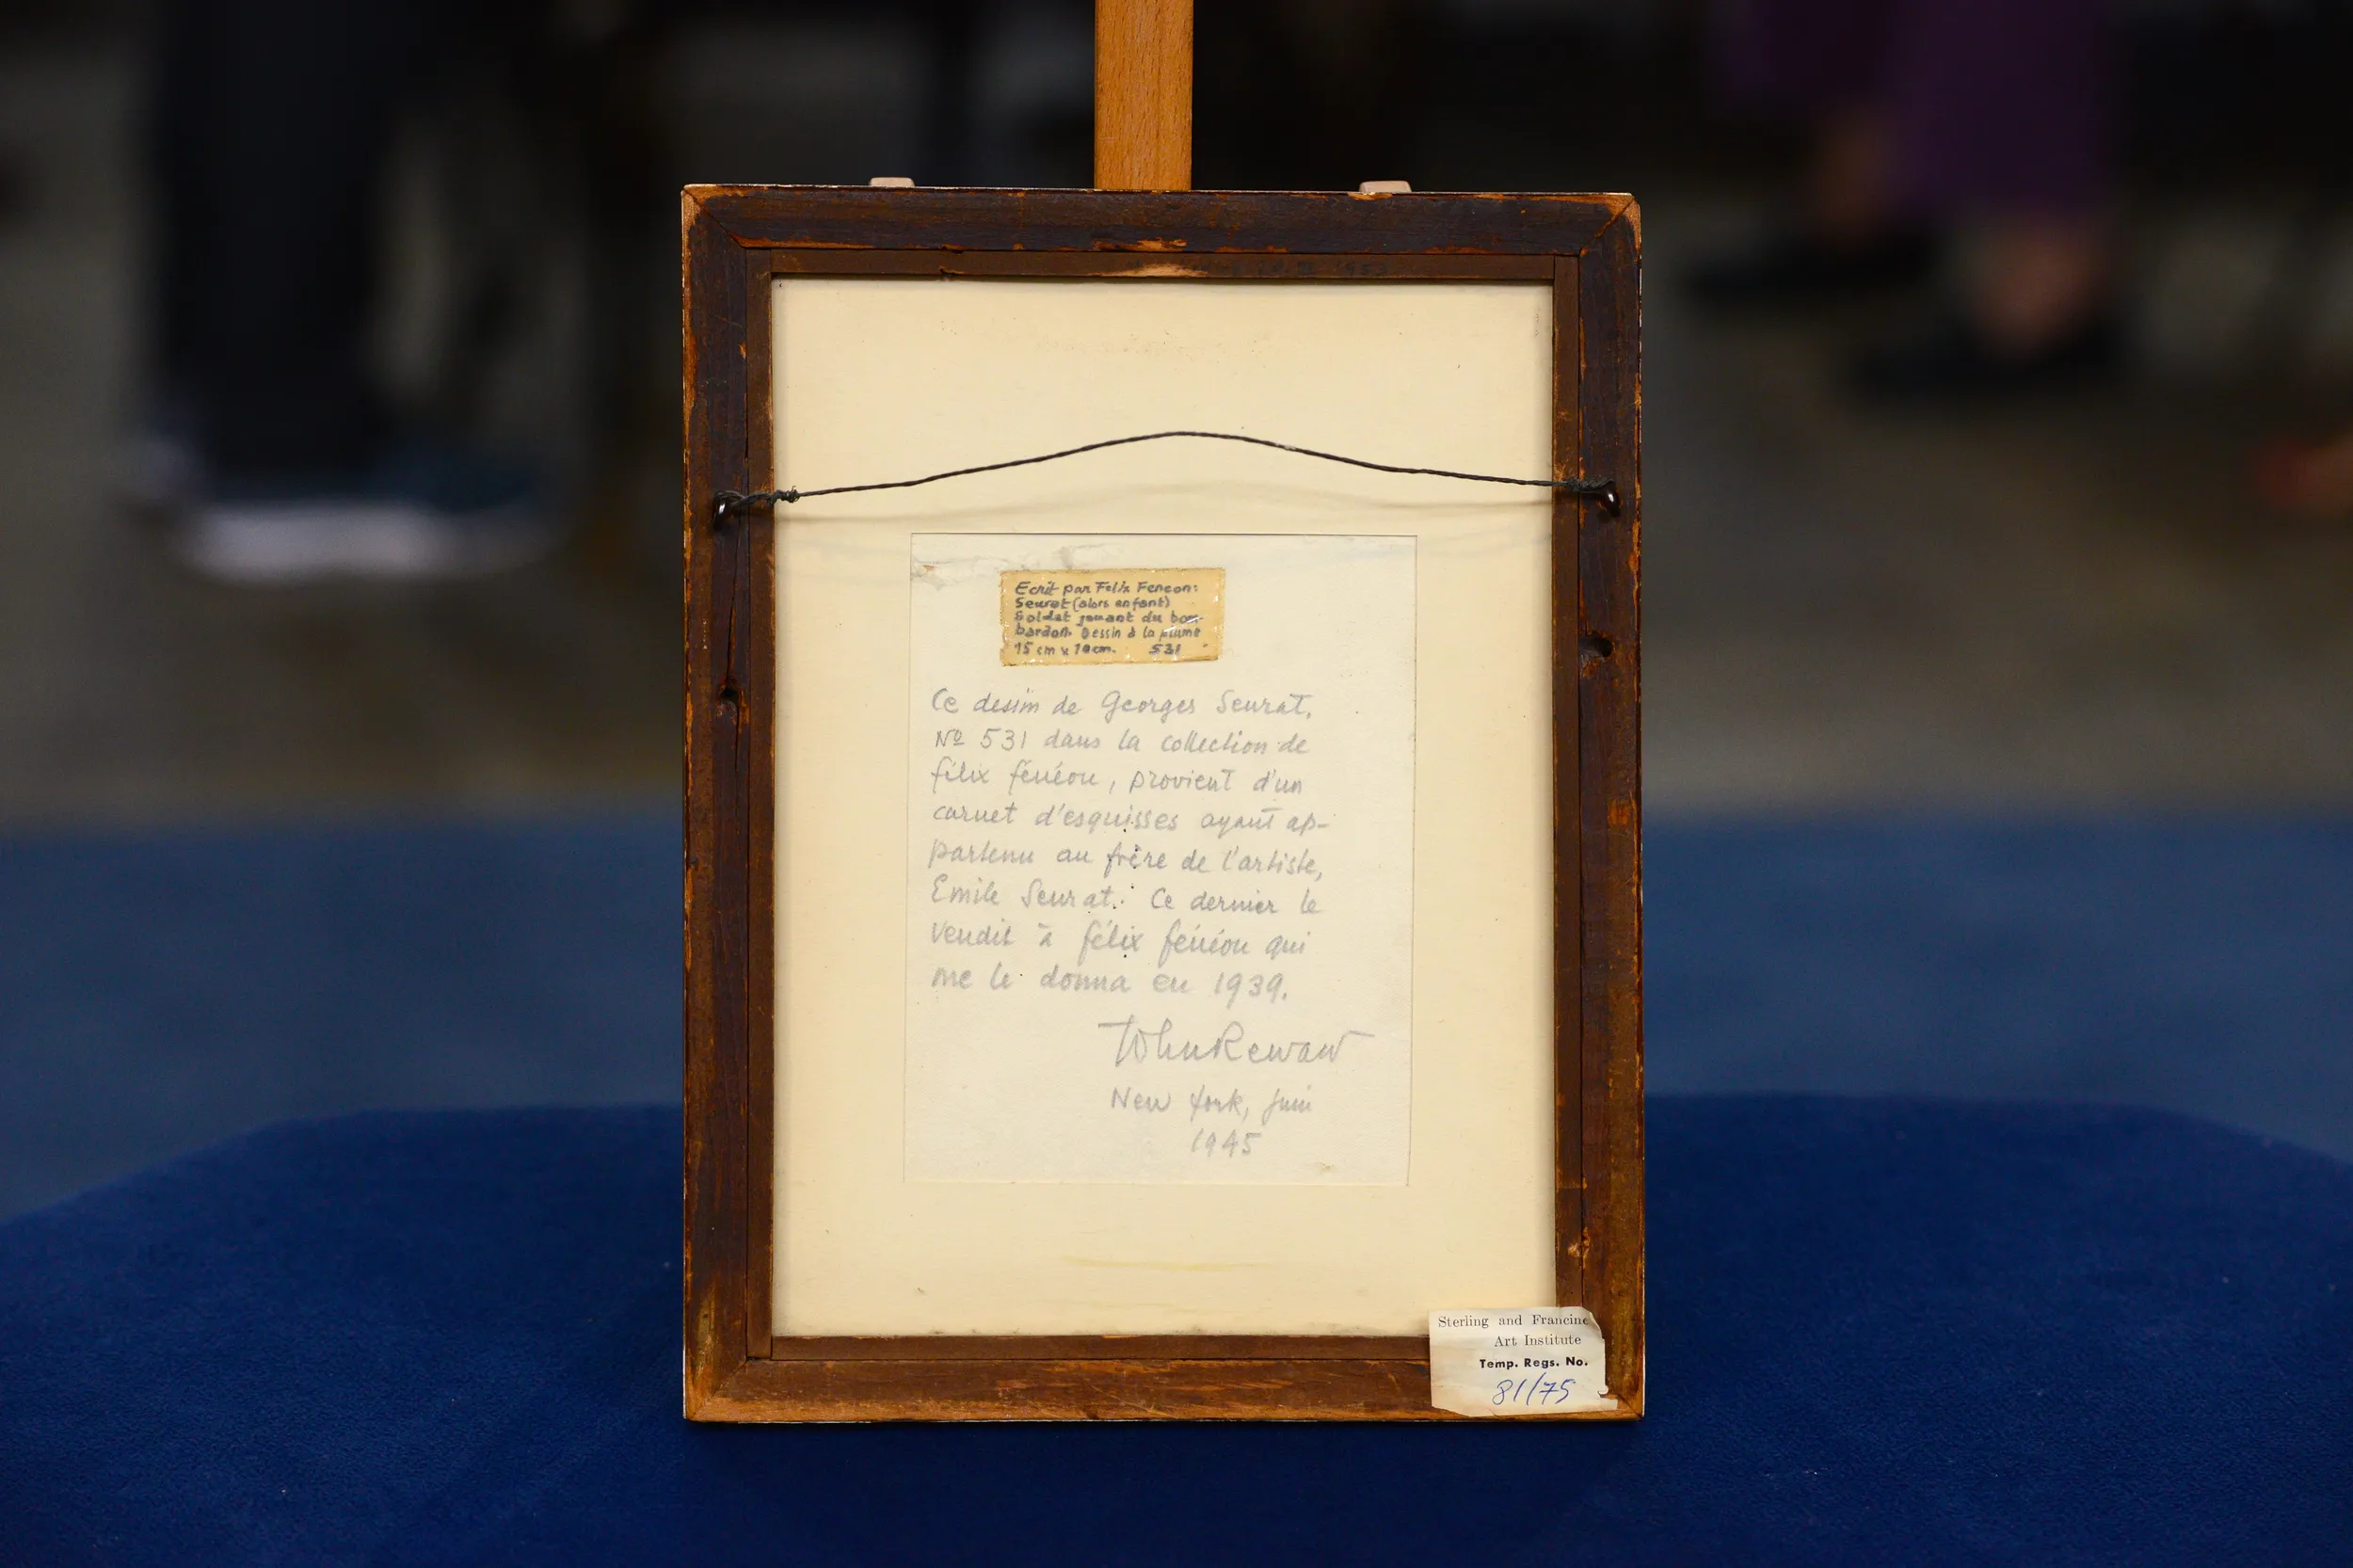 Ecrit par Felix Feneon:
Seurat (alors enfant)
Soldat jouant du bom-
bardon. Dessin à la plume
15 cm x 10 cm. 531
Ce dessin de Georges Seurat,
Nº 531 dans la collection de
félix fénéon, provient d'un
carnet d'esquisses ayant ap-
partenu au frère de l'artiste,
Emile Seurat. Ce dernier le
vendit à félix fénéon qui
me le donna en 1939.
John Rewald
New York, Juin
1945
Sterling and Francine
Art Institute
Temp. Regs. No.
81/75